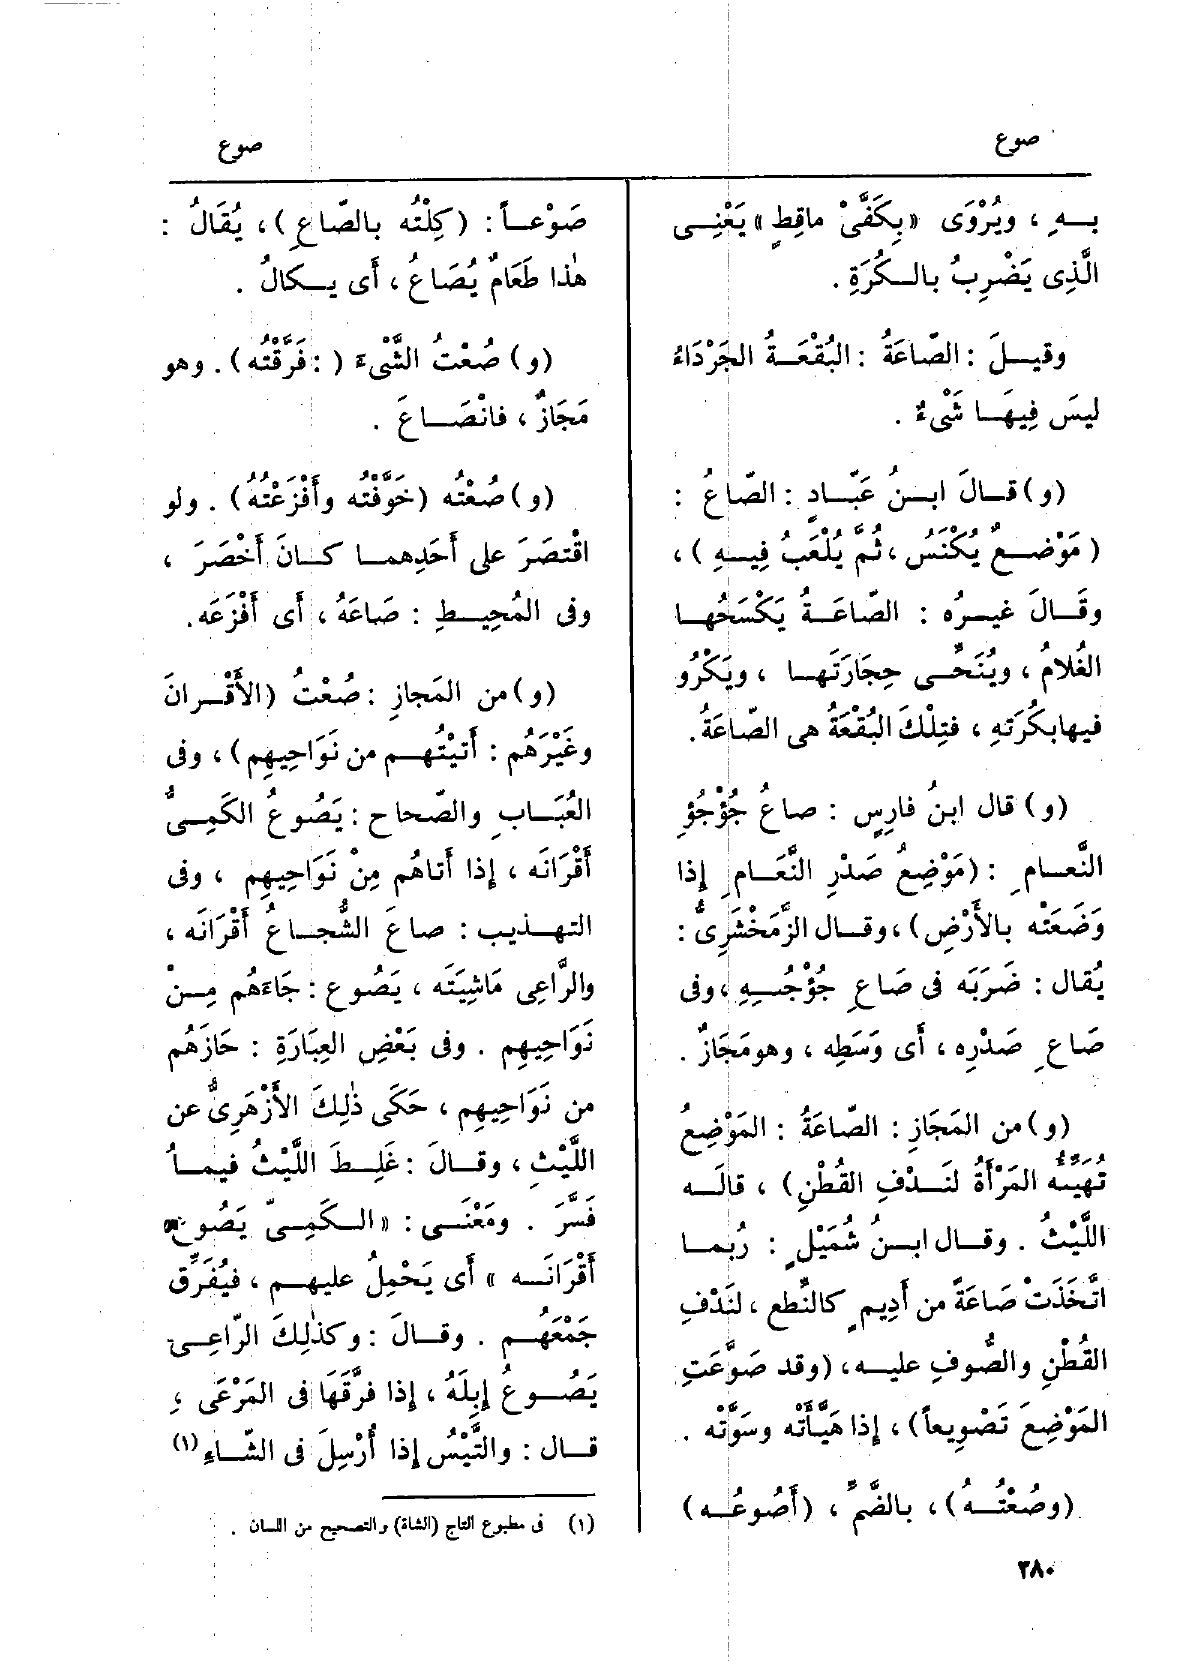 صوع
صوع
بـه ، ويُرْوَى «بِكَفَّىْ ماقِطٍ» يَعْنِى
الَّذِى يَضْرِبُ بالكُرَةِ .
وقيلَ : الصّاعَةُ : البُقْعَةُ الجَرْدَاءُ
ليسَ فِيهَا شَىْءٌ .
(و) قالَ ابنُ عَبّادٍ : الصّاعُ :
(مَوْضعٌ يُكْنَسُ ، ثُمَّ يُلْعَبُ فِيهِ) ،
وقَالَ غيرُه : الصّاعَةُ يَكْسَحُها
الغُلامُ ، ويُنَحِّى حِجَارَتَها ، ويَكْرُو
فيها بكُرَتهِ ، فتِلْكَ البُقْعَةُ هى الصّاعَةُ.
(و) قال ابنُ فارِسٍ : صاعُ جُؤْجُؤِ
النَّعامِ : (مَوْضِعُ صَدْرِ النَّعَامِ إذا
وَضَعَتْه بالأَرْضِ) ، وقال الزَّمَخْشَرِىُّ :
يُقال : ضَرَبَه فى صَاعِ جُؤْجُئِهِ ، وفى
صَاعِ صَدْرِه ، أى وَسَطِه ، وهو مَجَازٌ .
(و) من المَجَازِ : الصّاعَةُ : المَوْضِعُ
تُهَيِّئُه المَرْأَةُ لنَدْفِ القُطْنِ) ، قالَه
اللَّيْثُ . وقال ابنُ شُمَيْلٍ : رُبما
اتَّخَذَتْ صَاعَةً من أَدِيمٍ كالنِّطَع ، لنَدْفِ
القُطْنِ والصُّوفِ عليه ، (وقد صَوَّعَتِ
المَوْضِعَ تَصْوِيعاً) ، إذا هَيَّأَتْه وسَوَّتْه .
(وصُعْتُهُ) ، بالضَّمِّ ، (أَصُوعُه)
صَوْعاً : (كِلْتُه بالصّاعِ) ، يُقَالُ :
هٰذا طَعَامٌ يُصَاعُ ، أى يكالُ .
(و) صُعْتُ الشَّىْءَ ( : فَرَّقْتُه) . وهو
مَجَازٌ ، فانْصَاعَ .
(و) صُعْتُه (خَوَّفْتُه وأَفْزَعْتُهُ) . ولو
اقْتصَرَ على أَحَدِهما كانَ أَخْصَرَ ،
وفى المُحِيطِ : صَاعَهُ ، أى أَفْزَعَه.
(و) من المَجازِ : صُعْتُ (الأَقْرانَ
وغَيْرَهُم : أَتيْتُهم من نَوَاحِيهِم) ، وفى
العُبَابِ والصّحاح : يَصُوعُ الكَمِىُّ
أَقْرَانَه ، إذا أَتاهُم مِنْ نَوَاحِيهِم ، وفى
التهذيب : صاعَ الشُّجاعُ أَقْرَانَه ،
والرَّاعِى مَاشِيَتَه ، يَصُوع : جَاءَهُم مِنْ
نَوَاحِيهِم . وفى بَعْضِ العِبَارَةِ : حَازَهُم
من نَوَاحِيهِم ، حَكَى ذٰلِكَ الأَزْهَرِىُّ عن
اللَّيْثِ ، وقالَ : غَلِطَ اللَّيْثُ فيما
فَسَّرَ . ومَعْنَى : «الكَمِىّ يَصُوع
أَقْرَانَه» أى يَحْمِلُ عليهم ، فيُفَرِّق
جَمْعَهُم . وقالَ : وكذٰلِكَ الرّاعِى
يَصُوعُ إِبِلَهُ ، إذا فرَّقَهَا فى المَرْعَى ،
قال : والتَّيْسُ إذا أُرْسِلَ فى الشّاءِ (١)
(١) فى مطبوع التاج (الشاة) والتصحيح من اللسان .
٣٨٠